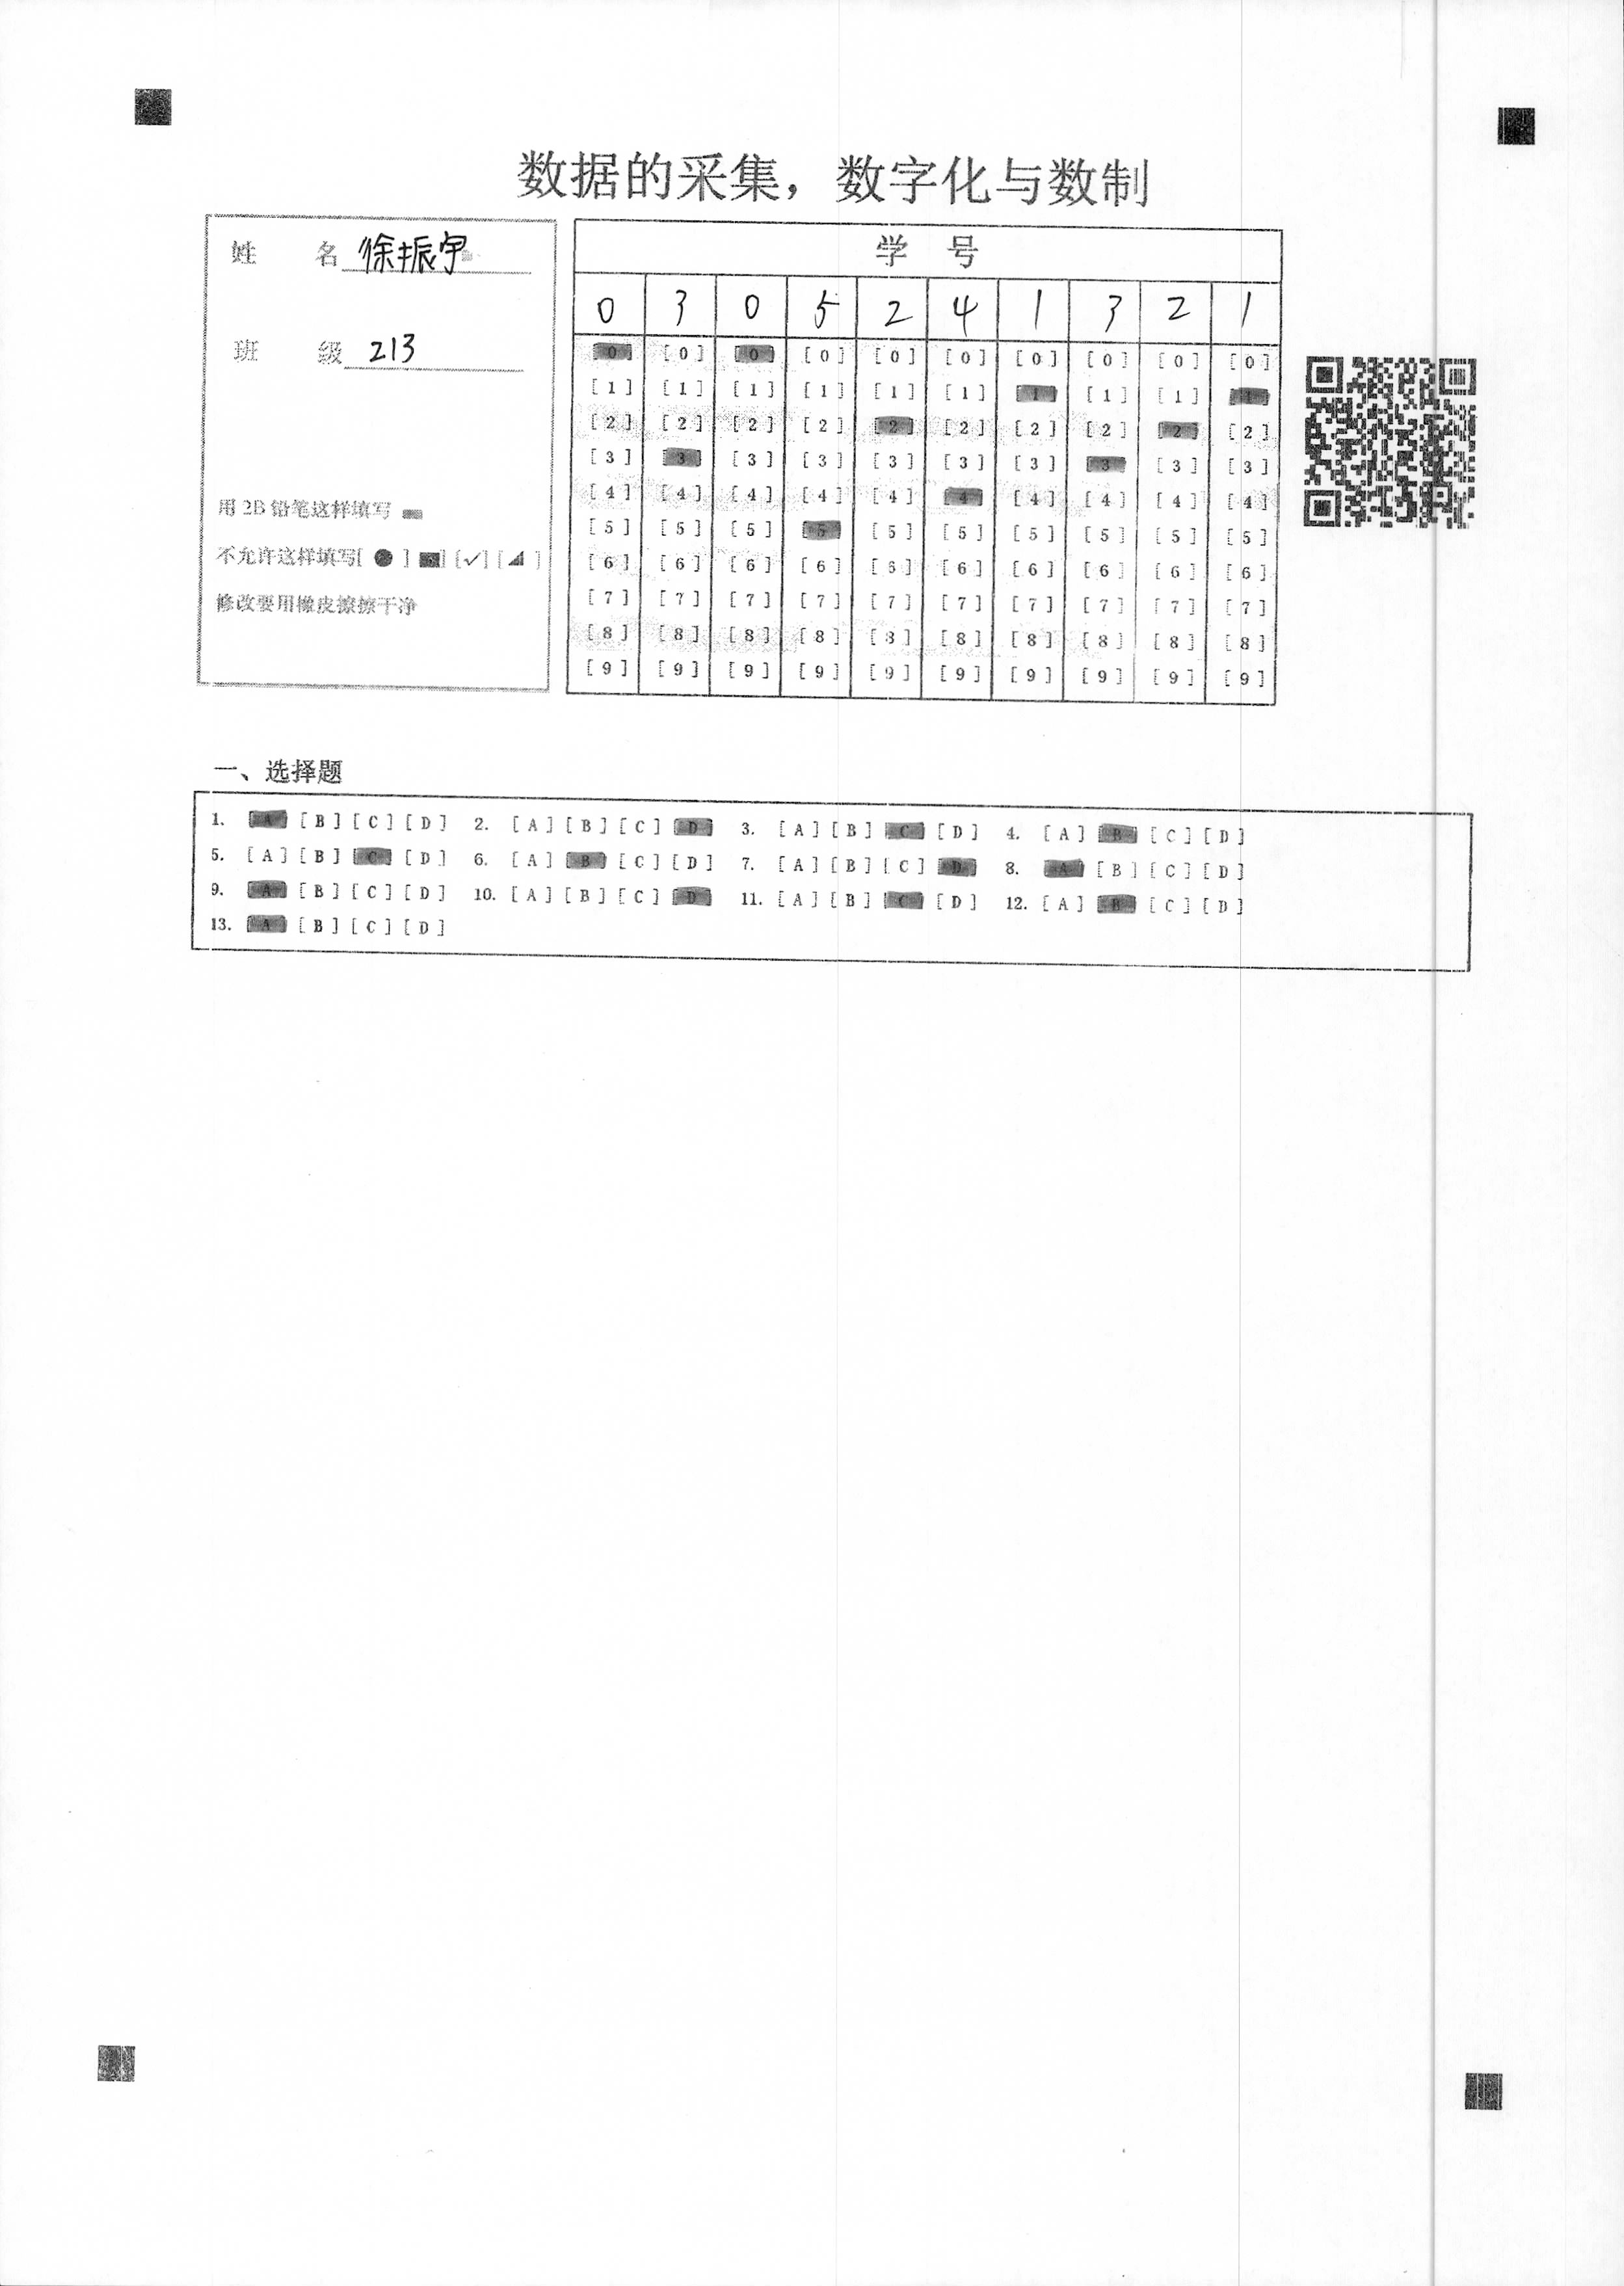 数据的采集，数字化与数制
姓 名 徐振宇
班 级 213
用 2B 铅笔这样填写
不允许这样填写[ ● ] [■] [✓] [◢ ]
修改要用橡皮擦擦干净
学 号
0 3 0 5 2 4 1 3 2 1
[0] [0] [0] [0] [0] [0] [0] [0] [0] [0]
[1] [1] [1] [1] [1] [1] [1] [1] [1] [1]
[2] [2] [2] [2] [2] [2] [2] [2] [2] [2]
[3] [3] [3] [3] [3] [3] [3] [3] [3] [3]
[4] [4] [4] [4] [4] [4] [4] [4] [4] [4]
[5] [5] [5] [5] [5] [5] [5] [5] [5] [5]
[6] [6] [6] [6] [6] [6] [6] [6] [6] [6]
[7] [7] [7] [7] [7] [7] [7] [7] [7] [7]
[8] [8] [8] [8] [8] [8] [8] [8] [8] [8]
[9] [9] [9] [9] [9] [9] [9] [9] [9] [9]
一、选择题
1. [A] [B] [C] [D] 2. [A] [B] [C] [D] 3. [A] [B] [C] [D] 4. [A] [B] [C] [D]
5. [A] [B] [C] [D] 6. [A] [B] [C] [D] 7. [A] [B] [C] [D] 8. [A] [B] [C] [D]
9. [A] [B] [C] [D] 10. [A] [B] [C] [D] 11. [A] [B] [C] [D] 12. [A] [B] [C] [D]
13. [A] [B] [C] [D]